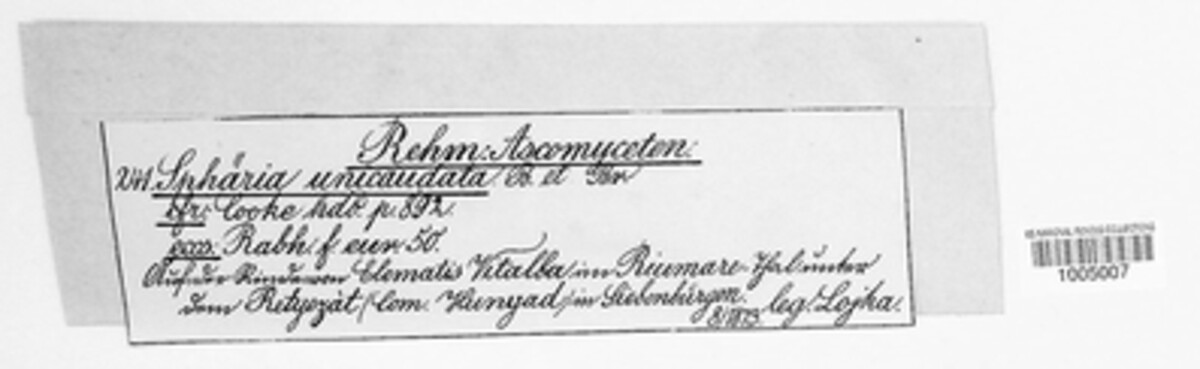 Rehm: Ascomyceten.
Sphäria unicaudata B. et Br
cfr: Cooke hdb. p. 892.
exs: Rabh. f. eur 50.
Auf der Rinde von Clematis Vitalba im Riumare-Thal unter
dem Retyezát (Com. Hunyad) in Siebenbürgen.
leg. Lojka.
US NATIONAL FUNGUS COLLECTIONS
1005007